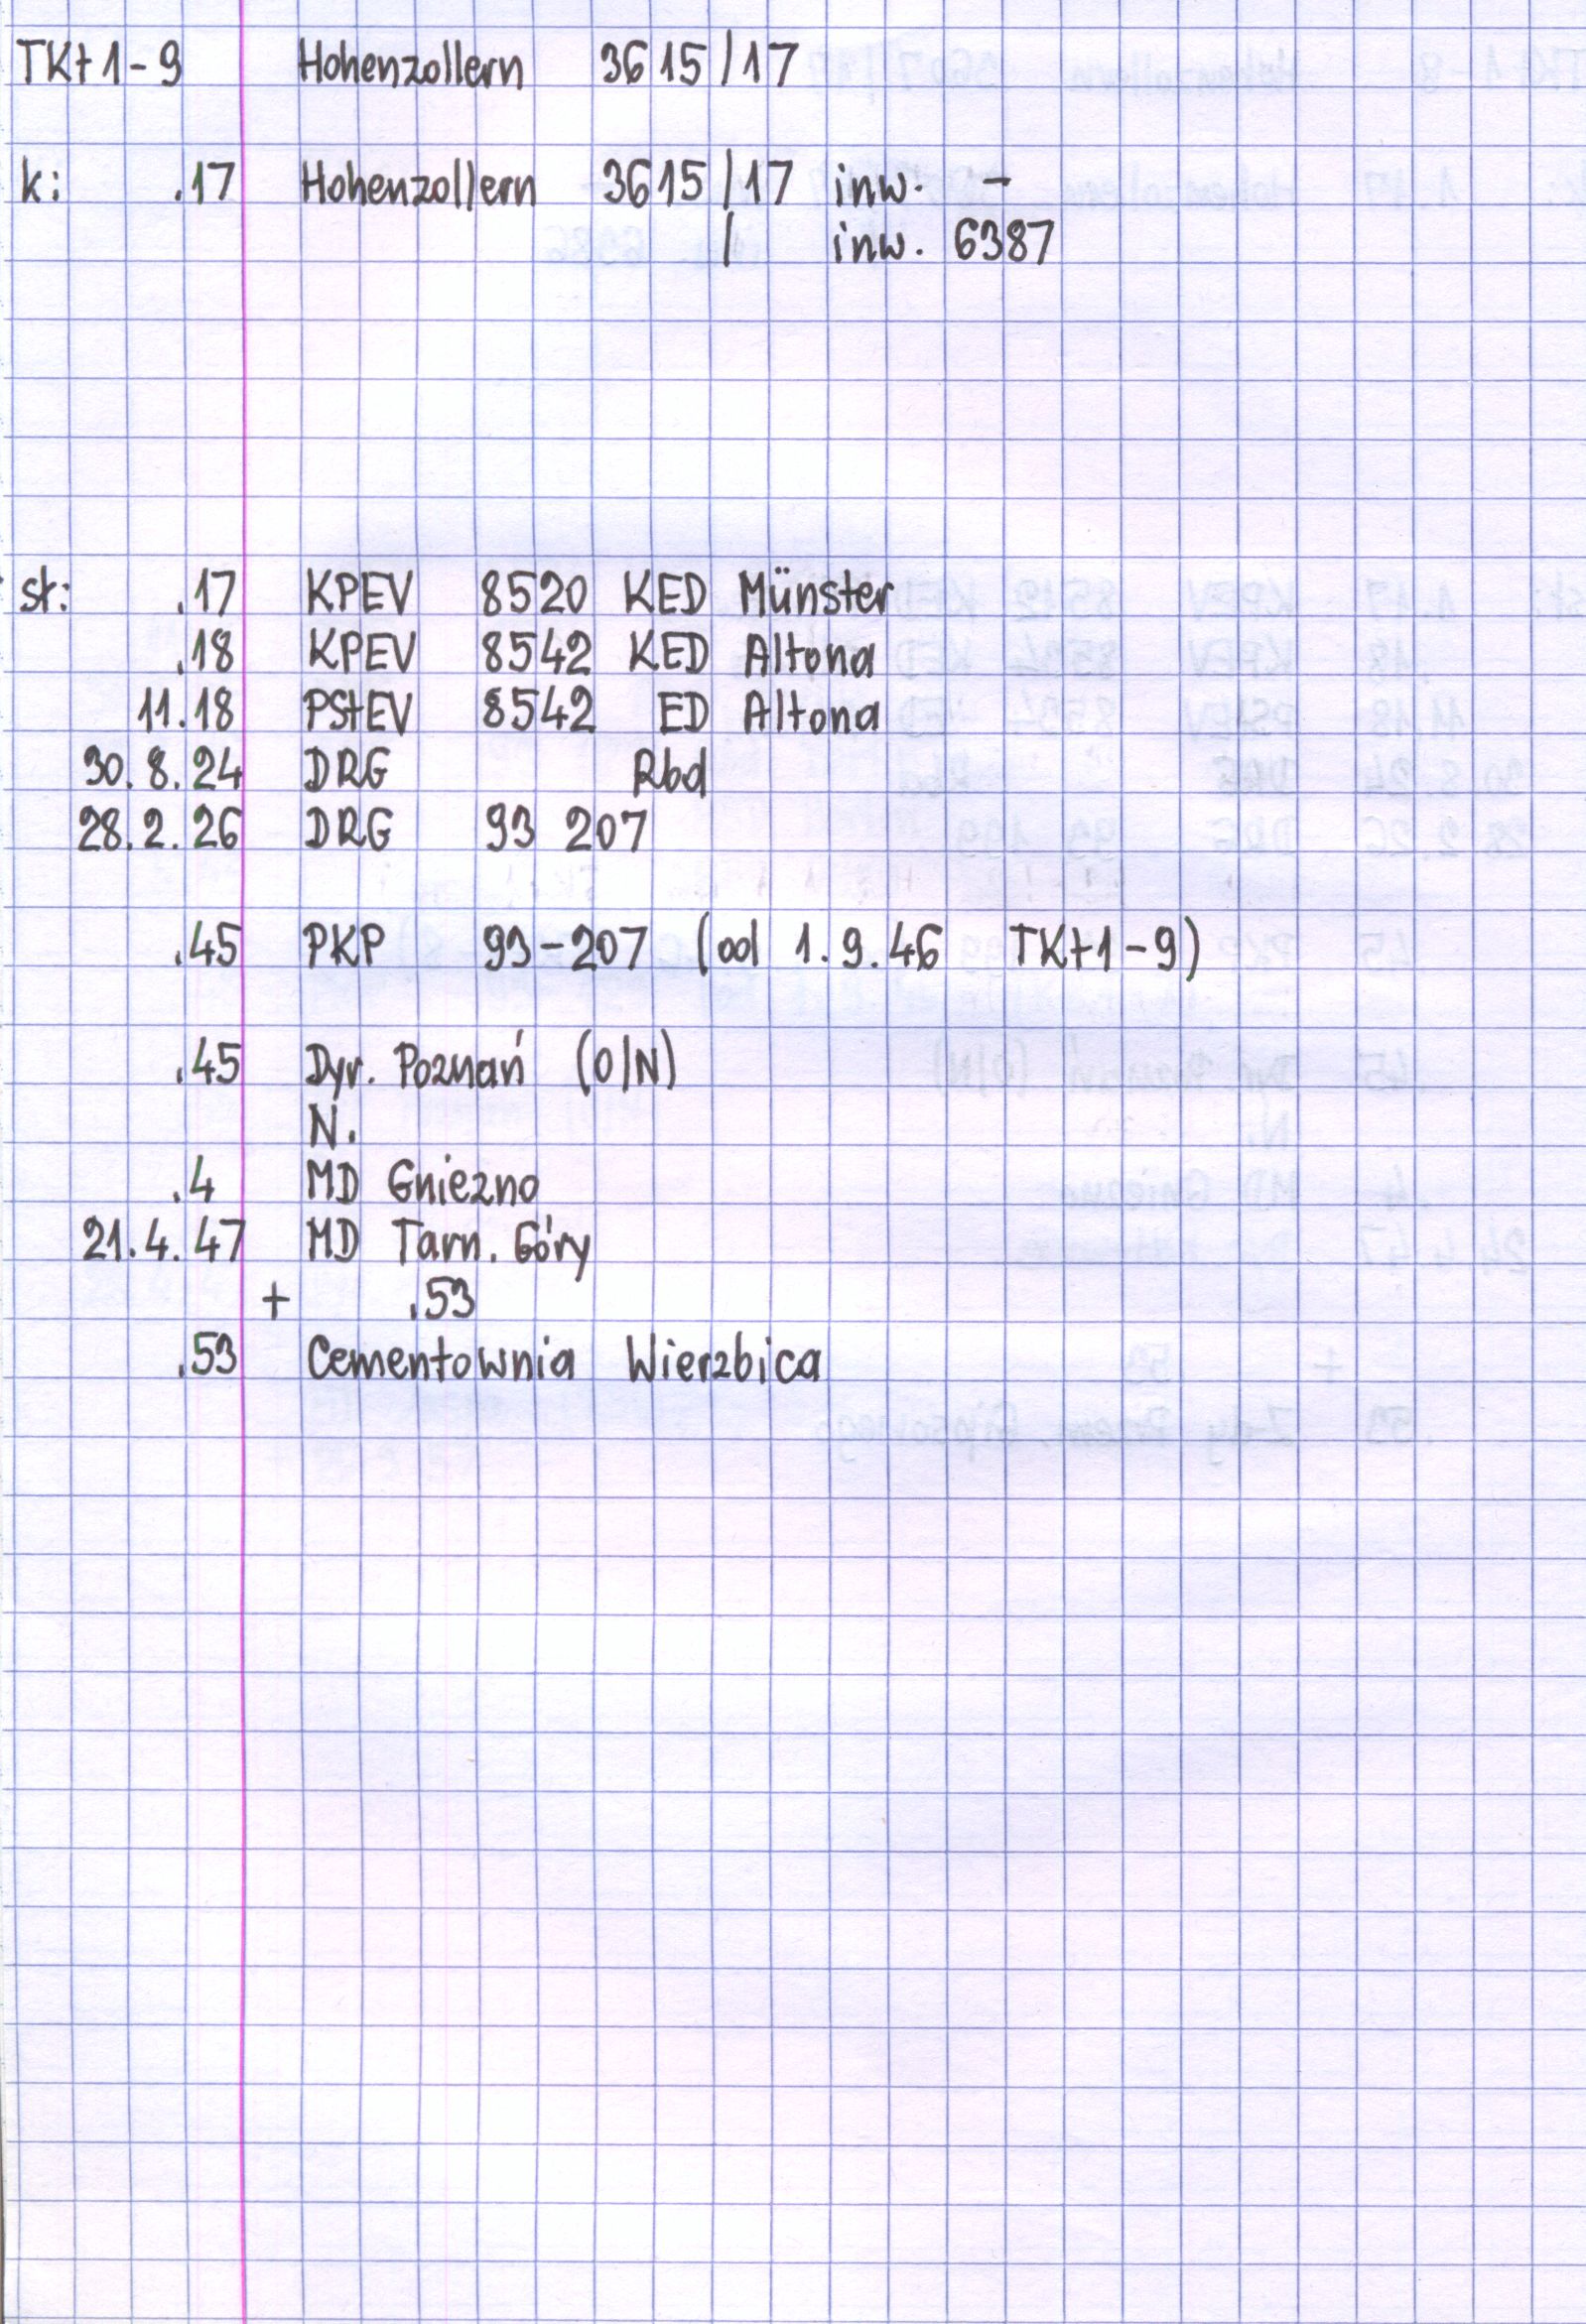 TKt1-9 Hohenzollern 3615/17
k: .17 Hohenzollern 3615/17 inw. -
/ inw. 6387
st: .17 KPEV 8520 KED Münster
.18 KPEV 8542 KED Altona
11.18 PStEV 8542 ED Altona
30.8.24 DRG Rbd
28.2.26 DRG 93 207
.45 PKP 93-207 (od 1.9.46 TKt1-9)
.45 Dyr. Poznań (O/N)
N.
.4 MD Gniezno
21.4.47 MD Tarn. Góry
+ .53
.53 Cementownia Wierzbica